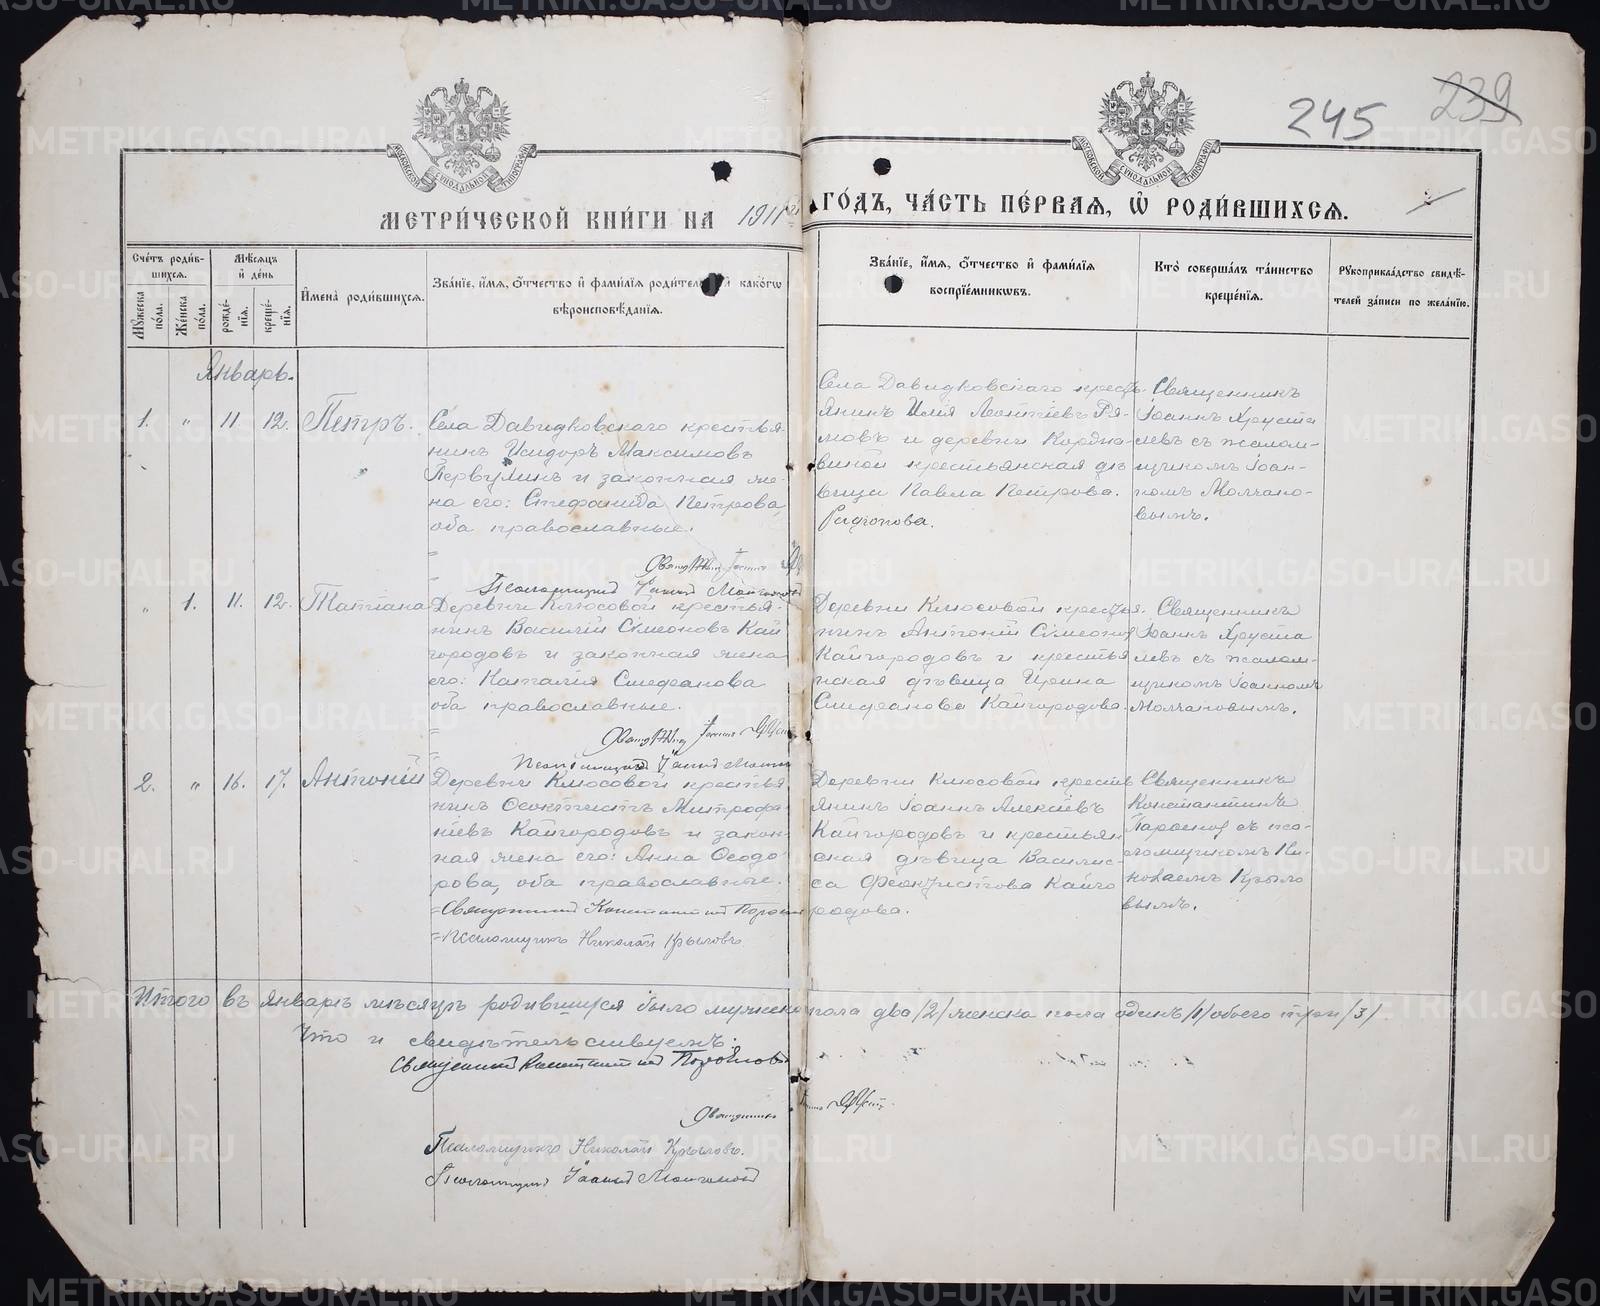 245
239
МЕТРИЧЕСКОЙ КНИГИ НА 1911 ГОДЪ, ЧАСТЬ ПЕРВАЯ, Ѡ РОДИВШИХСЯ.
Счетъ родив-
шихся.
Мужеска пола.
Женска пола.
Мѣсяцъ и день
рожде-
нія.
креще-
нія.
Имена родившихся.
Званіе, имя, отчество и фамилія родителей и какогѡ
вѣроисповѣданія.
Званіе, имя, отчество и фамилія
воспріемниковъ.
Кто совершалъ таинство
крещенія.
Рукоприкладство свидѣ-
телей записи по желанію.
Январь.
1. " 11. 12. Петръ.
Села Давыдковскаго крестья-
нинъ Исидоръ Максимовъ
Первулинъ и законная же-
на его: Стефанида Петрова,
оба православные.
Села Давыдковскаго кресть-
янинъ Илія Леонтіевъ Ря-
мовъ и деревни
крестьянская дѣ-
вица Павла Петрова
Священникъ
Іоаннъ Хруста
левъ съ псалом-
щикомъ Іоан-
номъ Молчано-
вымъ.
Псаломщикъ Іоаннъ Молчановъ
" 1. 11. 12. Татіана
Деревни Клюсовой крестья-
нинъ Василій Сімеоновъ Кай
городовъ и законная жена
его: Наталія Стефанова
оба православные.
Деревни Клюсовой крестья-
нинъ Антоній Сімеоновъ
Кайгородовъ и крестья
нская дѣвица Ирина
Стефанова Кайгородова.
Священникъ
Іоаннъ Хруста
левъ съ псалом-
щикомъ Іоанномъ
Молчановымъ.
Псаломщикъ Іоаннъ
2. " 16. 17. Антоній
Деревни Клюсовой крестья
нинъ Ѳеоктистъ Митрофа
ніевъ Кайгородовъ и закон-
ная жена его: Анна Ѳеодо-
рова, оба православные.
Священникъ Константинъ
Псаломщикъ Николай Крыловъ
Деревни Клюсовой кресть
янинъ Іоаннъ Алексіевъ
Кайгородовъ и крестьян
ская дѣвица Василис-
са Ѳеоктистова Кайго
родова.
Священникъ
Константинъ
съ пса-
ломщикомъ Ни-
колаемъ Крыло
вымъ.
Итого въ январѣ мѣсяцѣ родившихся было мужска пола два /2/ женска пола одинъ /1/ обоего три /3/
Что и свидѣтельствуемъ:
Священникъ Константинъ
Священникъ
Псаломщикъ Николай Крыловъ.
Псаломщикъ Іоаннъ Молчановъ
METRIKI.GASO-URAL.RU